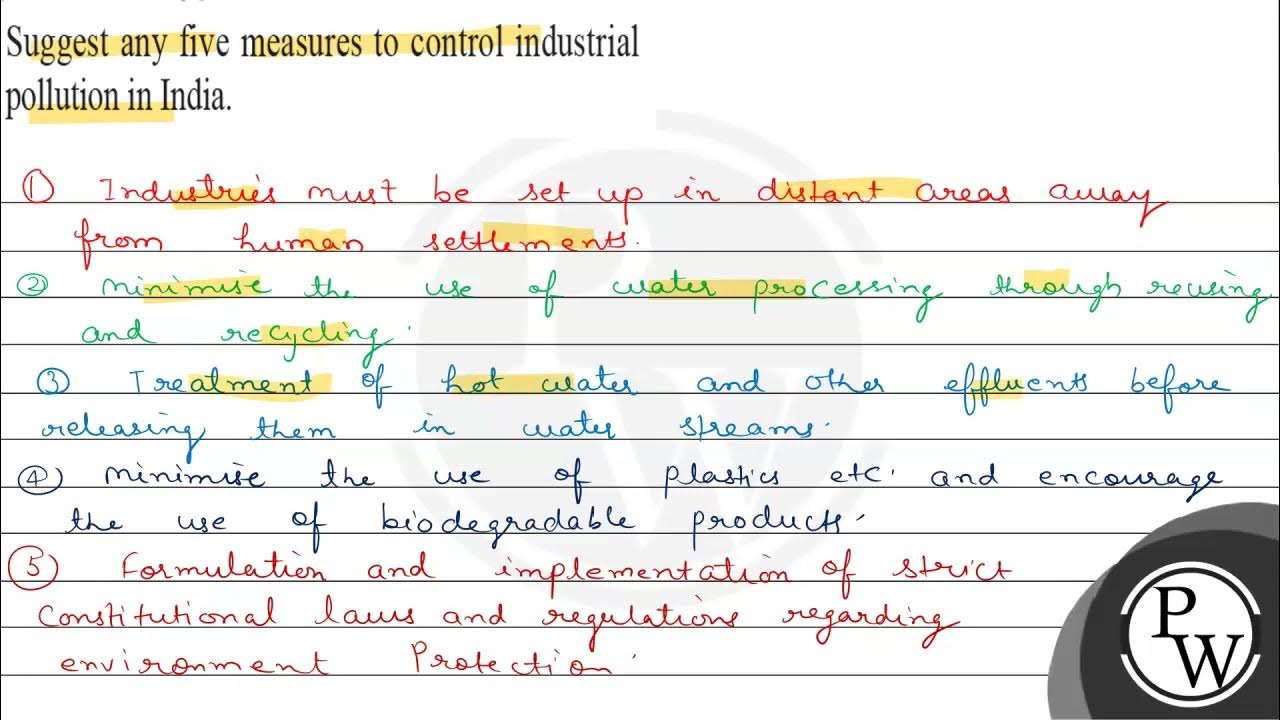 Suggest any five measures to control industrial
pollution in India.
① Industries must be set up in distant areas away
from human settlements.
② Minimise the use of water processing through reusing
and recycling.
③ Treatment of hot water and other effluents before
releasing them in water streams.
④ Minimise the use of plastics etc. and encourage
the use of biodegradable products.
⑤ Formulation and implementation of strict
Constitutional laws and regulations regarding
environment Protection.
PW